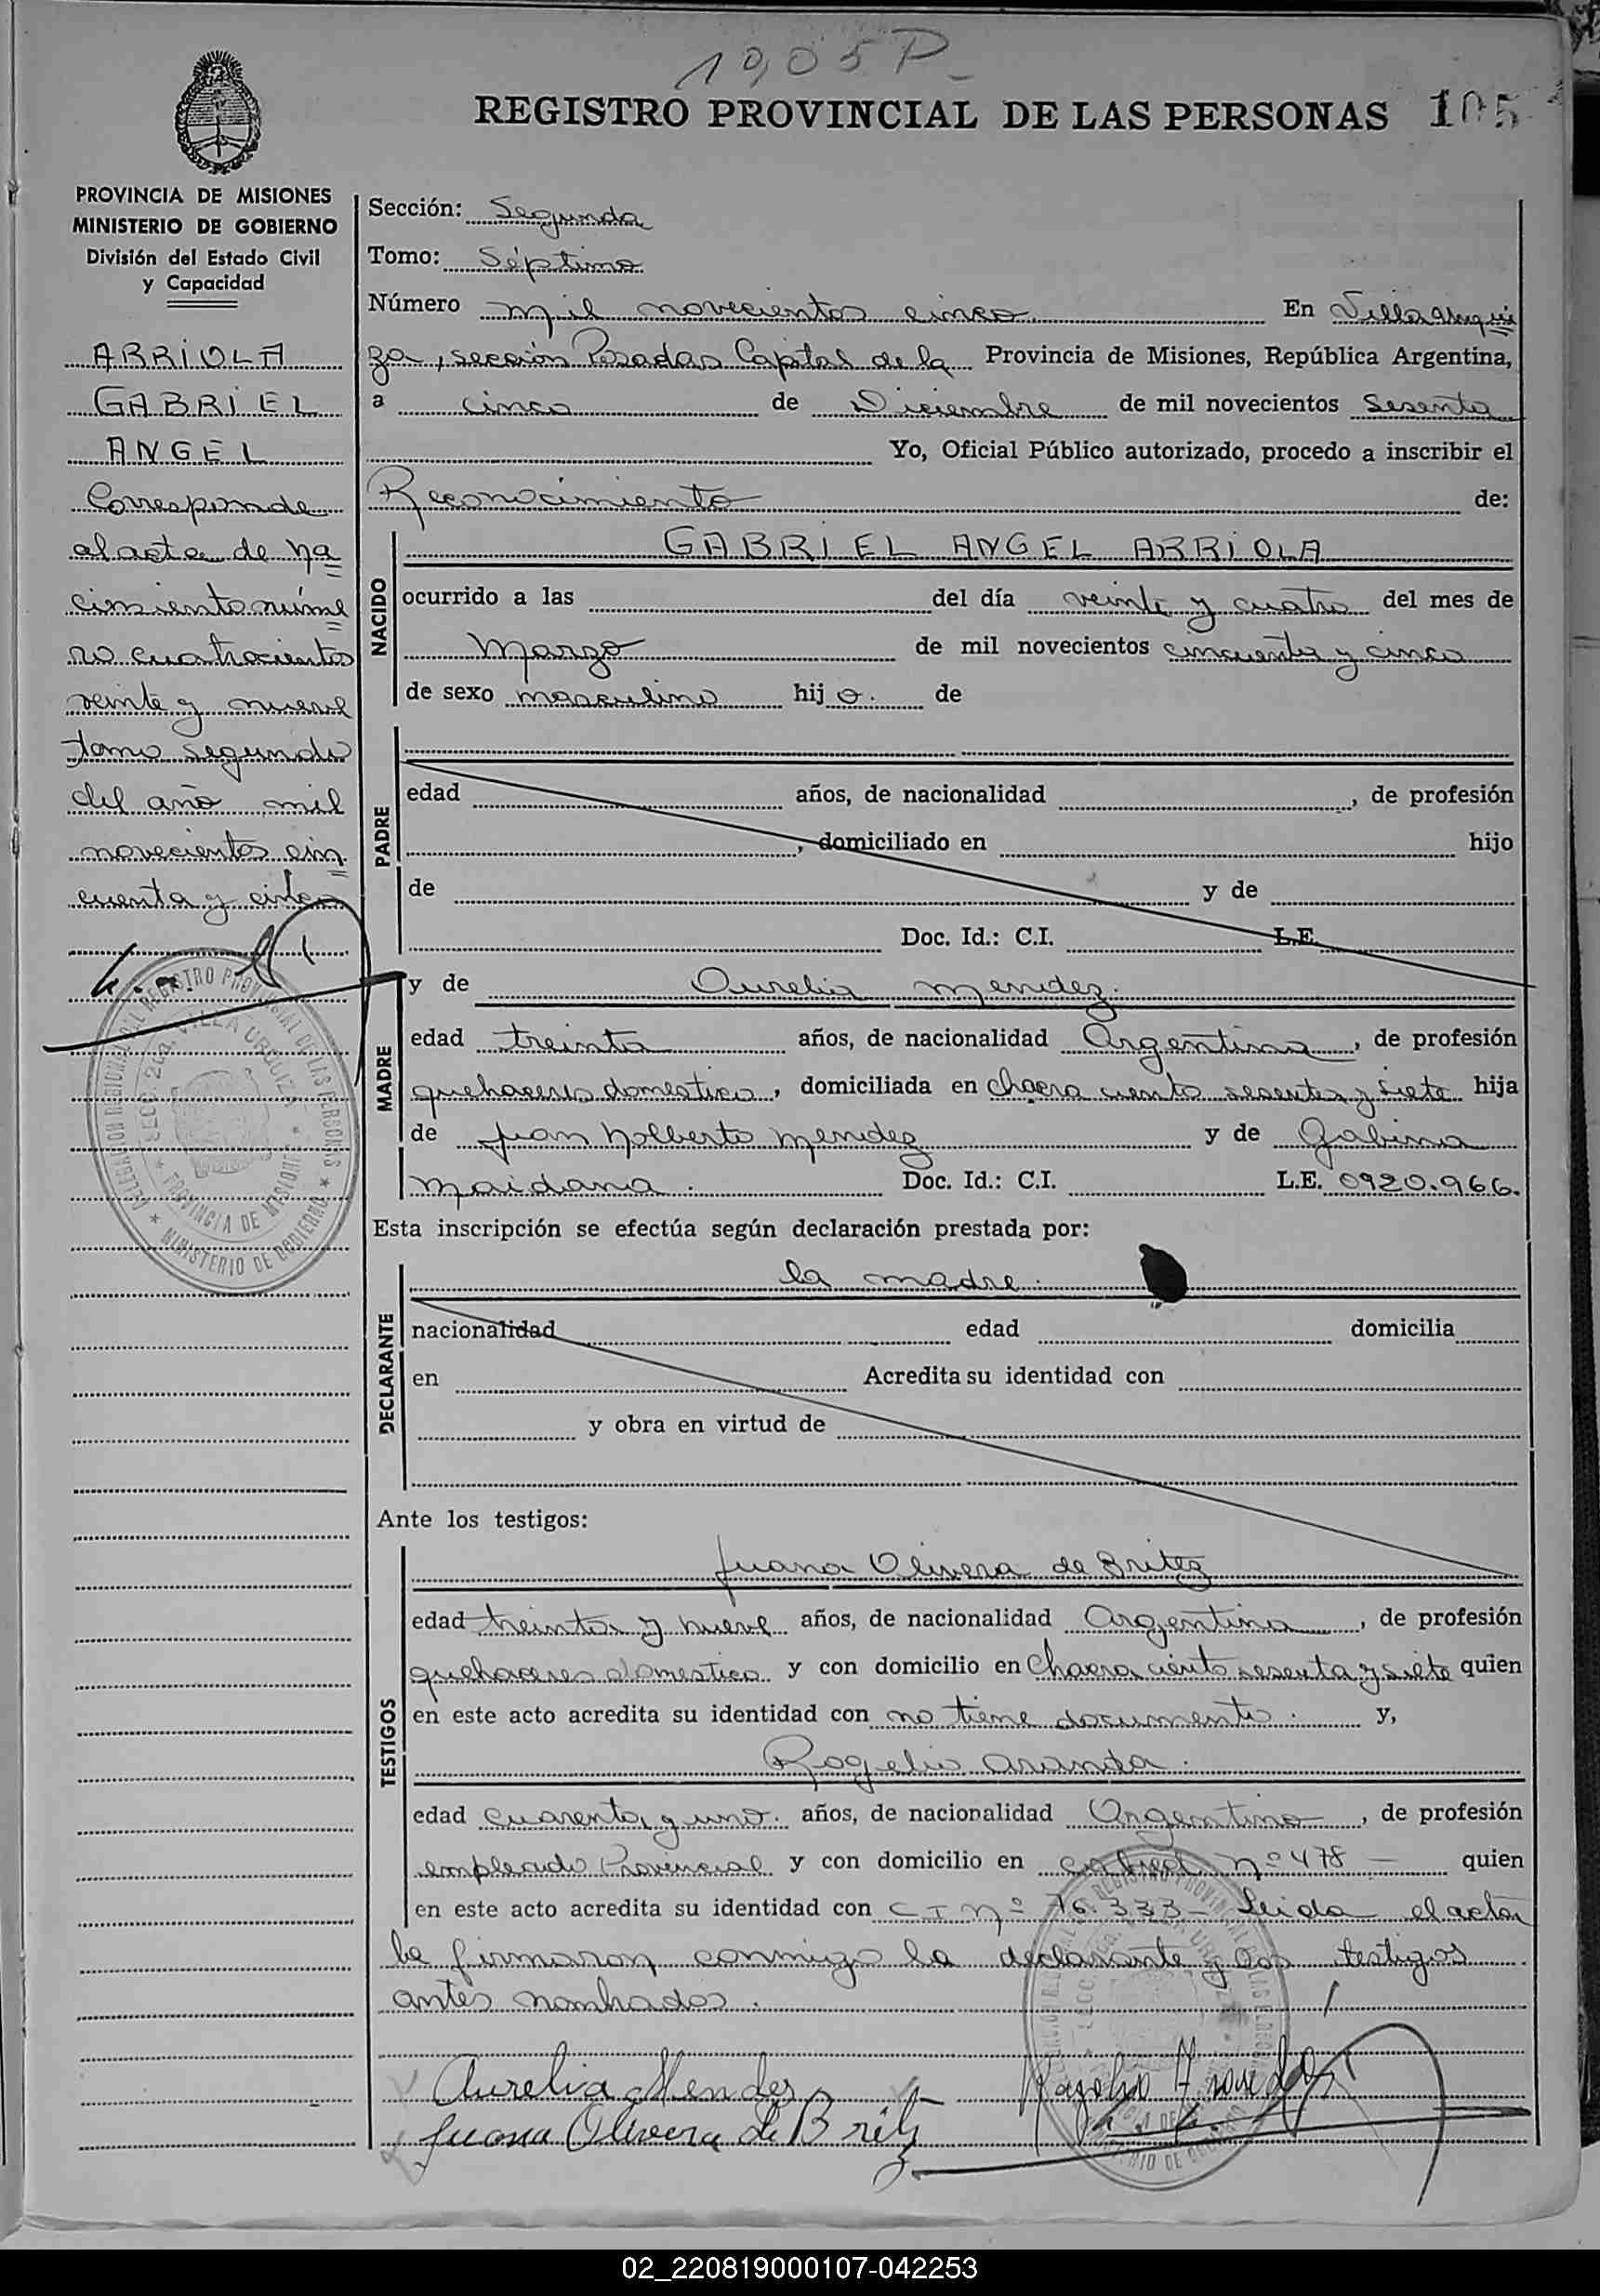 REGISTRO PROVINCIAL DE LAS PERSONAS 105
PROVINCIA DE MISIONES
MINISTERIO DE GOBIERNO
División del Estado Civil
y Capacidad
ARRIOLA
GABRIEL
ANGEL
Corresponde
al acta de na
cimiento núme
ro cuatrocientos
veinte y nueve
tomo segundo
del año mil
novecientos cin
cuenta y cinco
Sección: Segunda
Tomo: Séptimo
Número mil novecientos cinco En Villa Urqui
za, sección Posadas Capital de la Provincia de Misiones, República Argentina,
a cinco de Diciembre de mil novecientos sesenta
Yo, Oficial Público autorizado, procedo a inscribir el
Reconocimiento de:
NACIDO
GABRIEL ANGEL ARRIOLA
ocurrido a las del día veinte y cuatro del mes de
Marzo de mil novecientos cincuenta y cinco
de sexo masculino hijo. de
PADRE
edad años, de nacionalidad , de profesión
, domiciliado en hijo
de y de
Doc. Id.: C.I. L.E.
MADRE
y de Aurelia Mendez.
edad treinta años, de nacionalidad Argentina, de profesión
quehaceres domestico, domiciliada en chacra ciento sesenta y siete hija
de Juan Nolberto Mendez y de Gabina
Maidana. Doc. Id.: C.I. L.E. 0920.966.
Esta inscripción se efectúa según declaración prestada por:
DECLARANTE
la madre.
nacionalidad edad domicilia
en Acredita su identidad con
y obra en virtud de
Ante los testigos:
TESTIGOS
Juana Olivera de Britez
edad treinta y nueve años, de nacionalidad Argentina, de profesión
quehaceres domestico y con domicilio en Chacra ciento sesenta y siete quien
en este acto acredita su identidad con no tiene documento. y,
Rogelio Aranda.
edad cuarenta y uno. años, de nacionalidad Argentino, de profesión
empleado Provincial y con domicilio en nº 478 - quien
en este acto acredita su identidad con C I Nº 16.333 - Leida el acta
la firmaron conmigo la declarante y los testigos
antes nombrados.
Aurelia Mendez
Juana Olivera de Britez
DELEGACION REGIONAL DEL REGISTRO PROVINCIAL DE LAS PERSONAS
SECC. 2da. VILLA URQUIZA
PROVINCIA DE MISIONES
MINISTERIO DE GOBIERNO
02_220819000107-042253